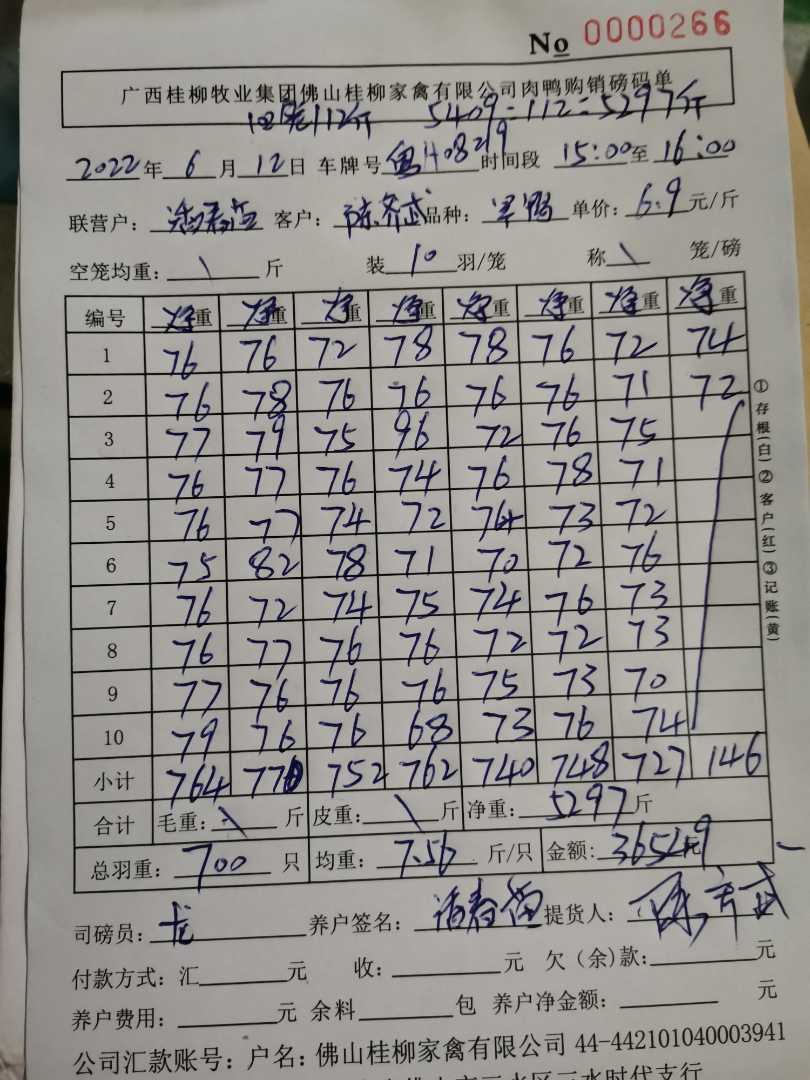 No 0000266
广西桂柳牧业集团佛山桂柳家禽有限公司肉鸭购销磅码单
112斤 5409-112=5297斤
2022年6月12日 车牌号 粤H08219 时间段 15:00至16:00
联营户: 客户: 陈齐武 品种: 单价: 6.9 元/斤
空笼均重: \ 斤 装 10 羽/笼 称 \ 笼/磅
编号 净重 净重 净重 净重 净重 净重 净重 净重
1 76 76 72 78 78 76 72 74
2 76 78 76 76 76 76 71 72
3 77 79 75 96 72 76 75
4 76 77 76 74 76 78 71
5 76 77 74 72 74 73 72
6 75 82 78 71 70 72 76
7 76 72 74 75 74 76 73
8 76 77 76 76 72 72 73
9 77 76 76 76 75 73 70
10 79 76 76 68 73 76 74
小计 764 770 752 762 740 748 727 146
合计 毛重: \ 斤 皮重: \ 斤 净重: 5297斤
总羽重: 700 只 均重: 7.56 斤/只 金额: 36549元
司磅员: 龙 养户签名: 提货人: 陈齐武
付款方式: 汇 元 收: 元 欠(余)款: 元
养户费用: 元 余料 包 养户净金额: 元
公司汇款账号: 户名: 佛山桂柳家禽有限公司 44-442101040003941
三水区三水时代支行
①存根(白)②客户(红)③记账(黄)